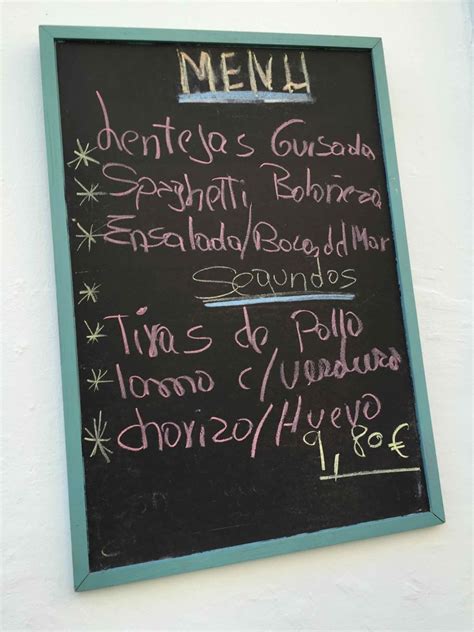 MENU
* Lentejas Guisada
* Spaghetti Boloñeza
* Ensalada/Bocas del Mar
Segundos
* Tiras de Pollo
* lomo c/verdura
* chorizo/Huevo
9,80€